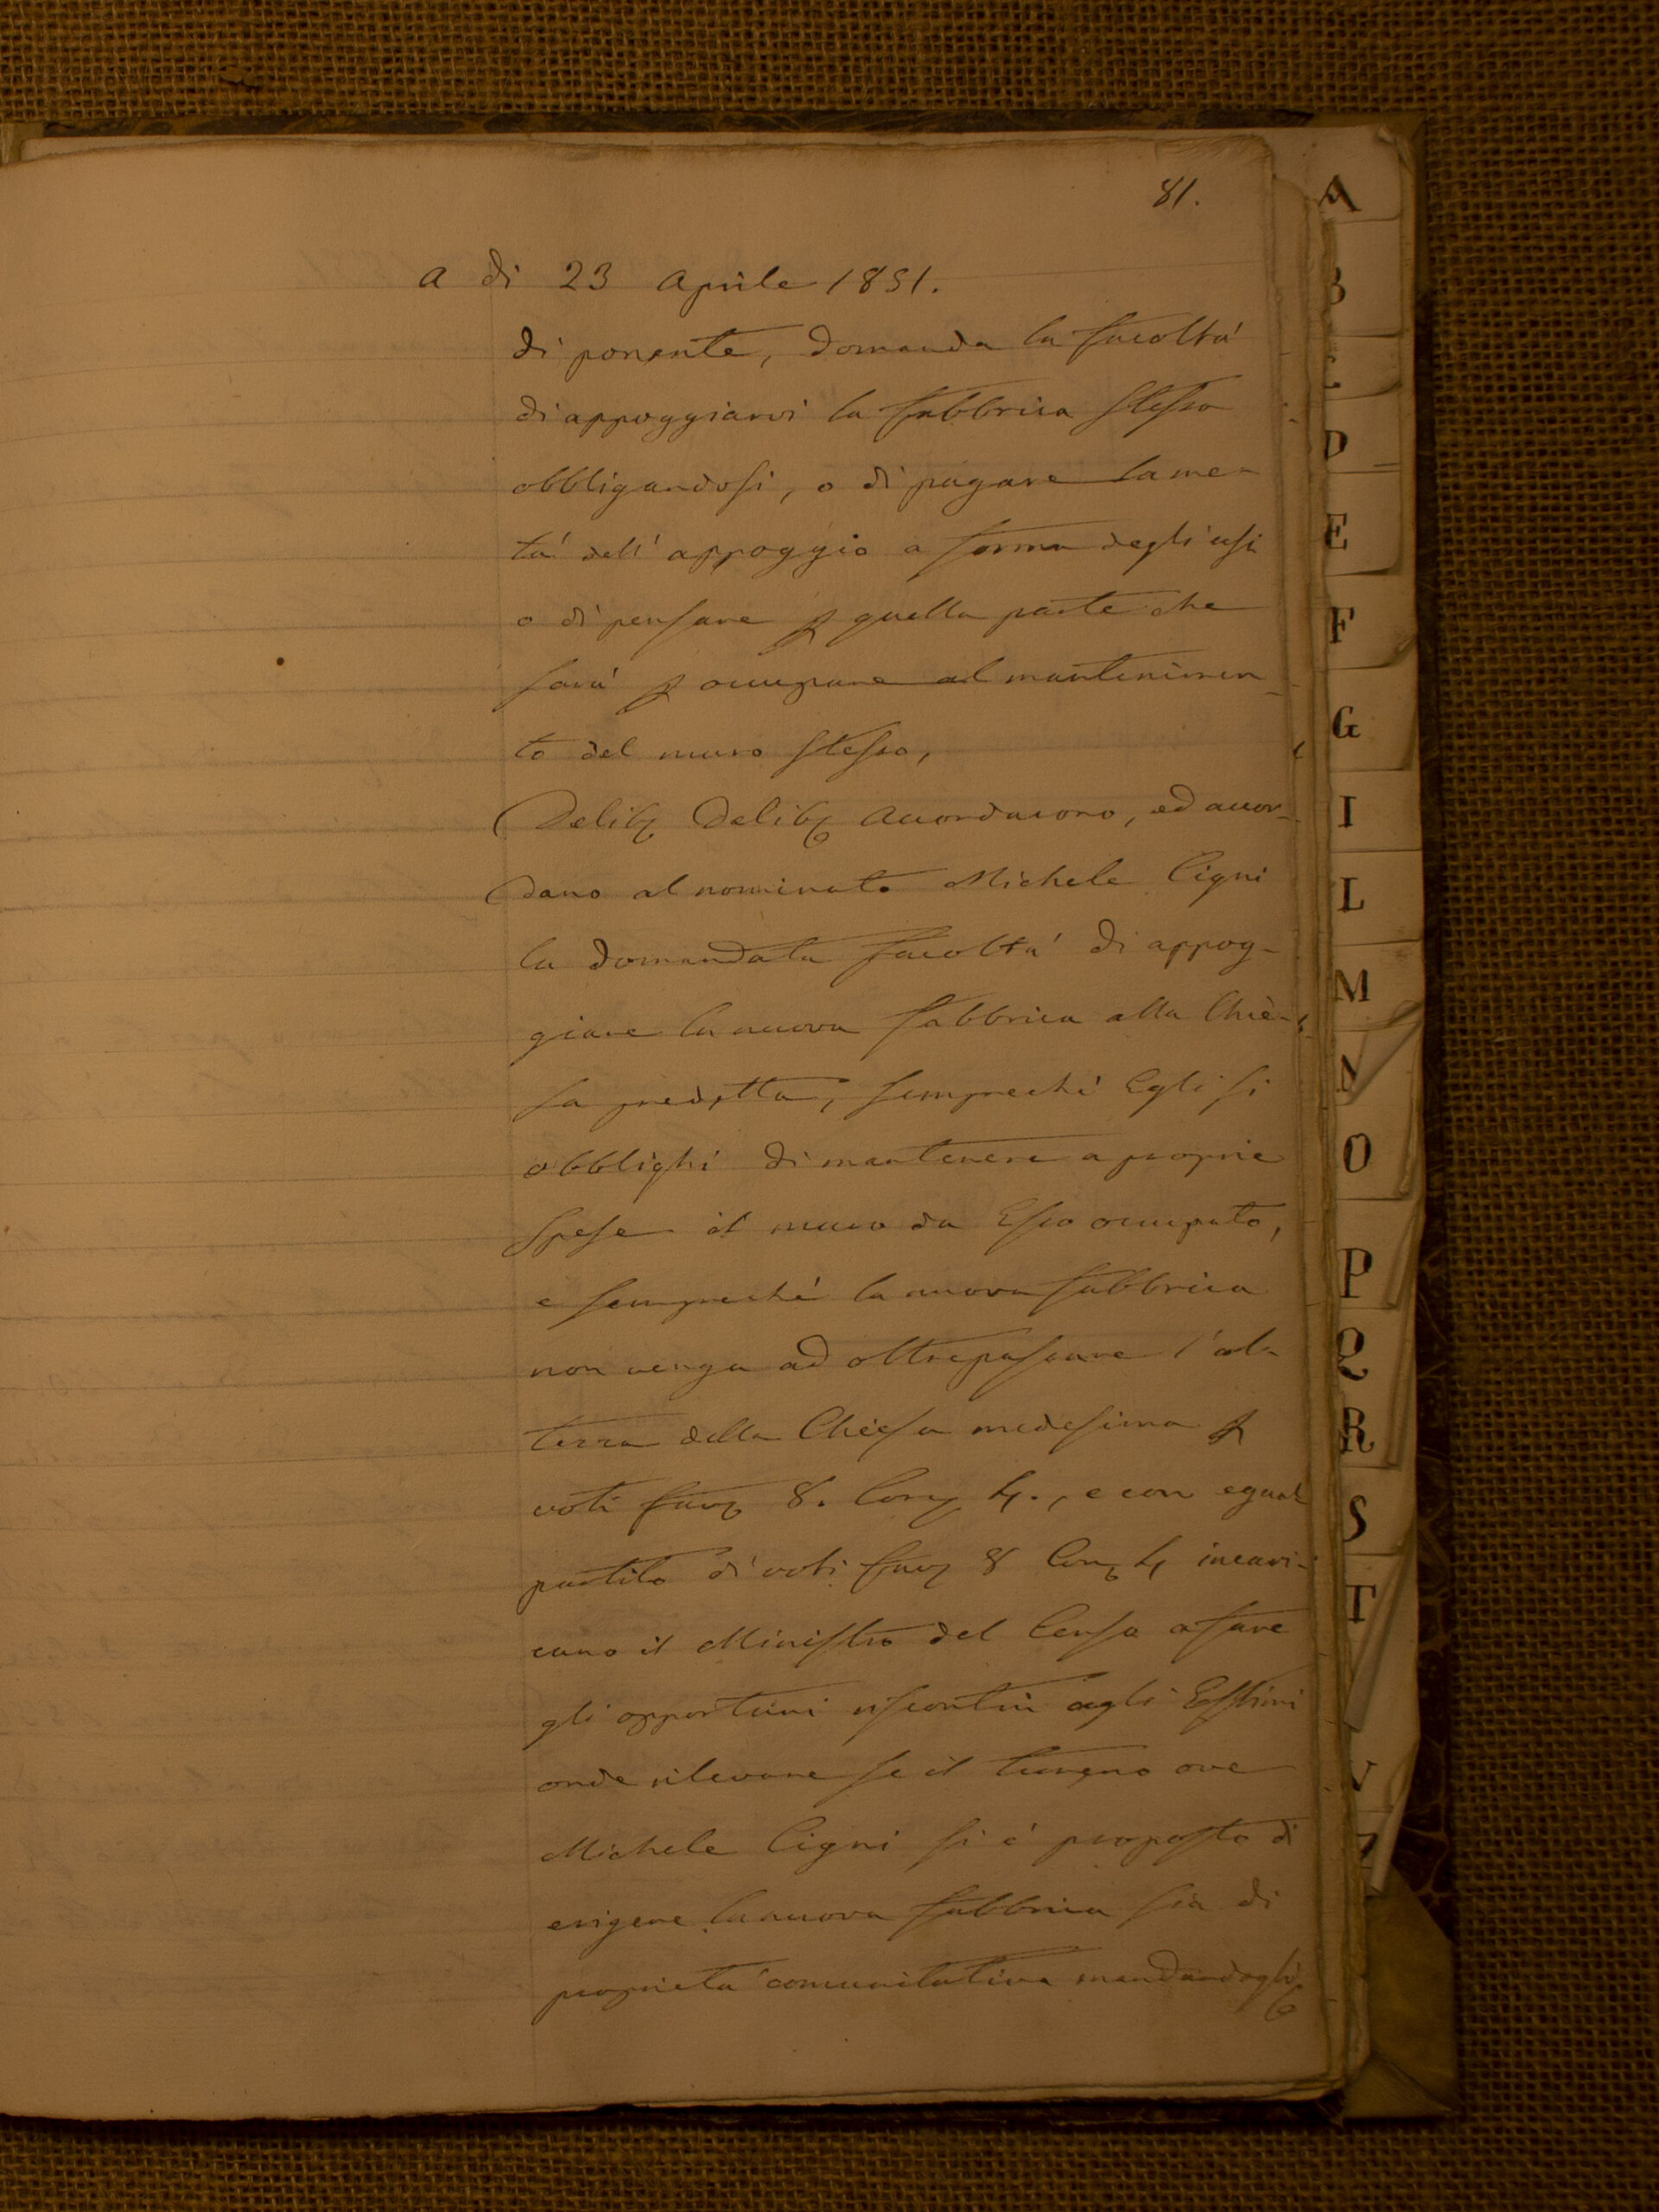 81.
a dì 23 Aprile 1851.
di ponente, domanda la facoltà
di appoggiarvi la fabbrica stessa
obbligandosi, o di pagare la me-
tà dell'appoggio a forma degli usi
o di pensare p quella parte che
sarà p occupare al mantenimen-
to del muro stesso,
Delib. Delib. accordarono, ed accor-
dano al nominato Michele Cigni
la domandata facoltà di appog-
giare la nuova fabbrica alla Chiè-
sa predetta, sempreché Egli si
obblighi di mantenere a proprie
Spese il muro da Esso occupato,
e sempreché la nuova fabbrica
non venga ad oltrepassare l'al-
tezza della Chiesa medesima p
voti fav. 8. Con. 4., e con egual
partito di voti fav. 8 Con. 4 incari-
cano il Ministro del Censo a fare
gli opportuni riscontri agli Estimi
onde rilevare se il terreno ove
Michele Cigni si è proposto di
erigere la nuova fabbrica sia di
proprietà comunitativa mandandogli
A
B
C
D
E
F
G
I
L
M
N
O
P
Q
R
S
T
V
Z